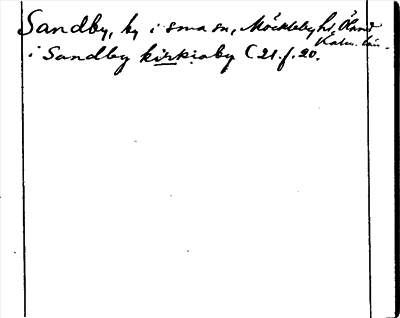 Sandby, by i sma sn, Möckleby hd, Öland
Kalm. län.
i Sandby kirkiaby C 21. f. 20.